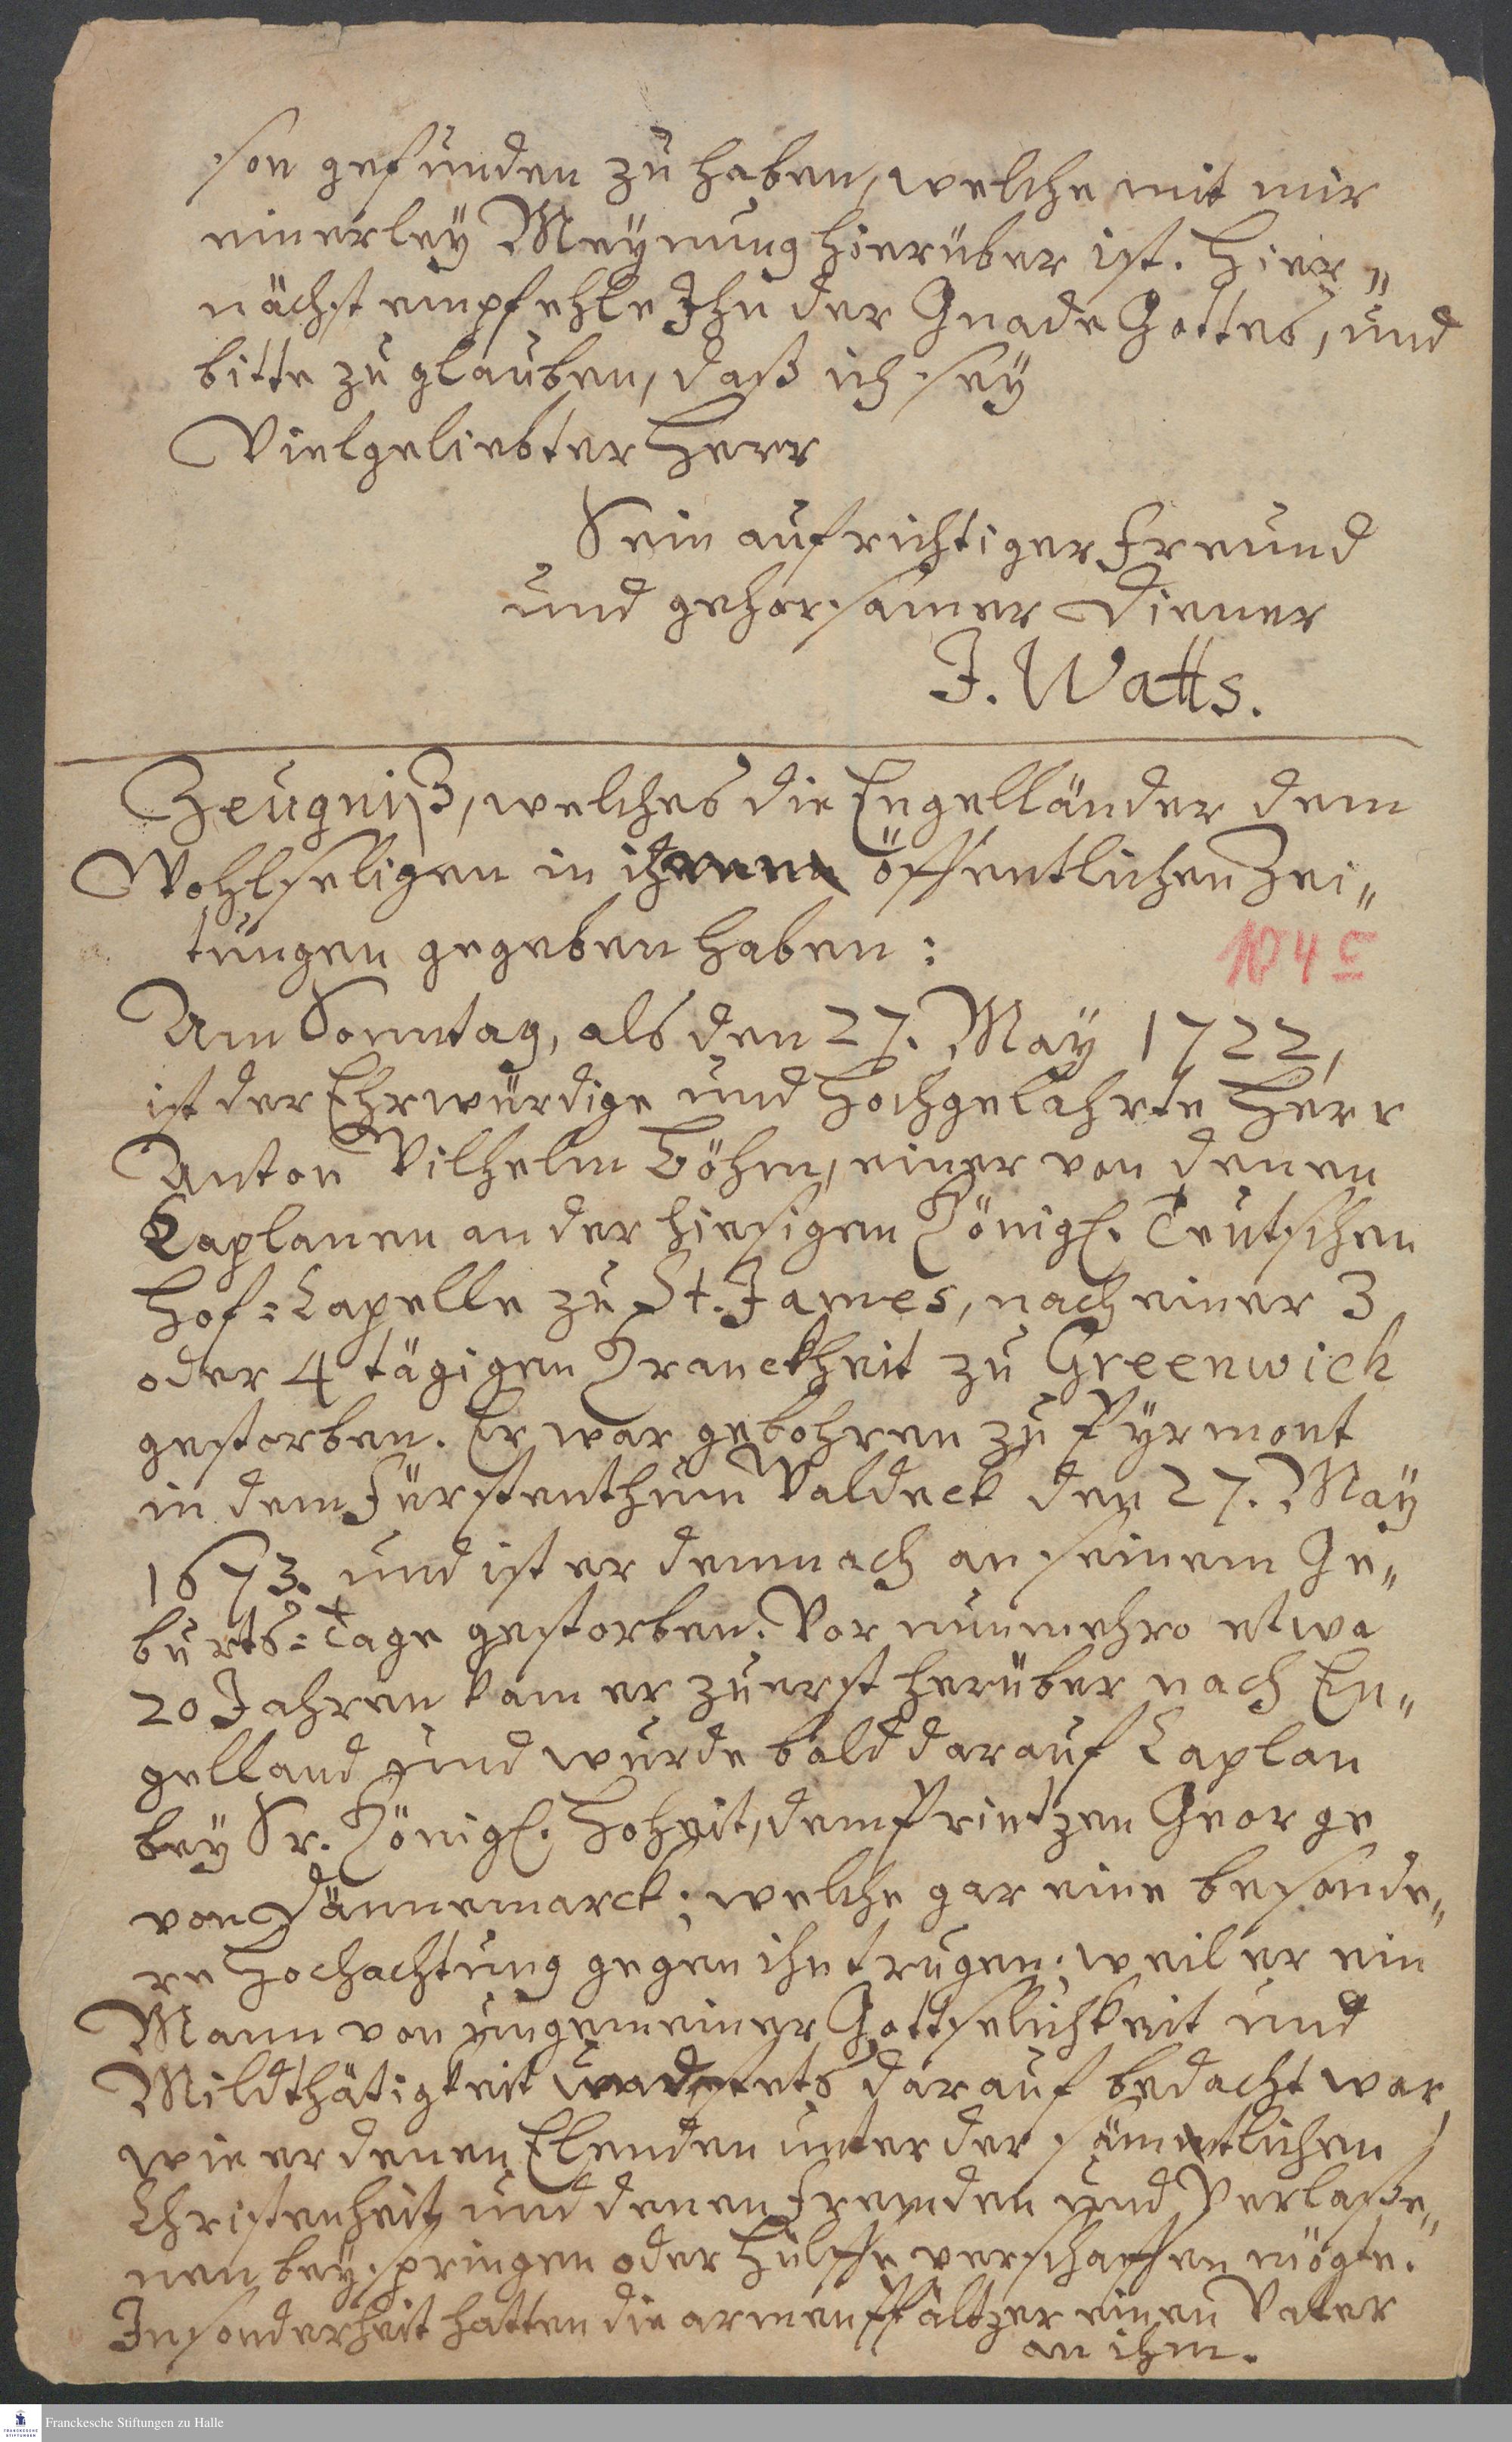 son gefunden zu haben, welche mit mir
einerley Meynung hierüber ist. Hier„
nächst empfehle Ihn der Gnade Gottes, und
bitte zu glauben, daß ich sey
Vielgeliebter Herr
Sein aufrichtiger Freund
und gehorsamer Diener
J. Watts.
Zeugniß, welches die Engelländer dem
Wohlseligen in ihren öffentlichen Zei„
tungen gegeben haben:
104 c
Am Sonntag, als den 27. May 1722,
ist der Ehrwürdige und Hochgelahrte Herr
Anton Wilhelm Böhm, einer von denen
Caplanen an der hiesigen Königl. Teutschen
Hof=Capelle zu St. James, nach einer 3
oder 4 tägigen Kranckheit zu Greenwich
gestorben. Er war gebohren zu Pyrmont
in dem Fürstenthum Waldeck den 27. May
1673. und ist er demnach an seinem Ge„
burts=Tage gestorben. Vor nunmehro etwa
20 Jahren kam er zuerst herüber nach En„
gelland und wurde bald darauf Caplan
bey Sr. Königl. Hoheit, dem Printzen George
von Dännemarck; welche gar eine besonde„
re Hochachtung gegen ihn trugen; weil er ein
Mann von ungemeiner Gottselichkeit und
Mildthätigkeit und stets darauf bedacht war,
wie er denen Elenden unter der sämtlichen
Christenheit und denen Fremden und Verlaße„
nen beyspringen oder Hülffe verschaffen mögte.
Insonderheit hatten die armen Pfältzer einen Vater
an ihm.
Franckesche Stiftungen zu Halle